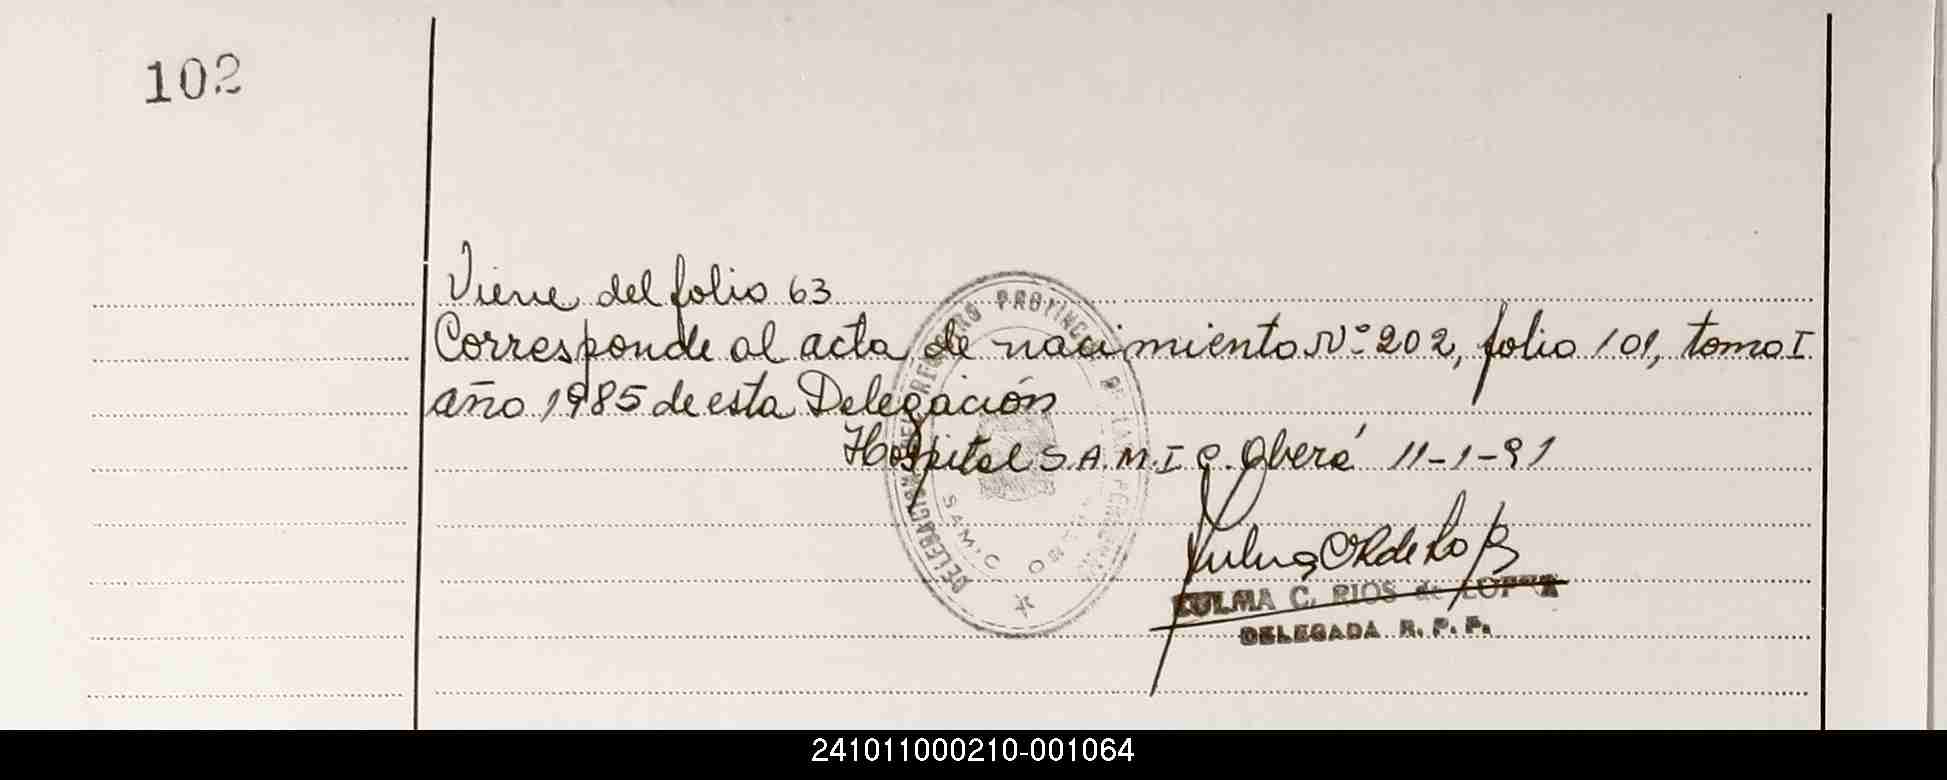 102
Viene del folio 63
Corresponde al acta de nacimiento Nº 202, folio 101, tomo I
año 1985 de esta Delegación
Hospital S.A.M.I.C. Oberá 11-1-91
DELEGACION DEL REGISTRO PROVINCIAL DE LAS PERSONAS
SAMIC
ZULMA C. RIOS de LOPEZ
DELEGADA R. P. P.
241011000210-001064